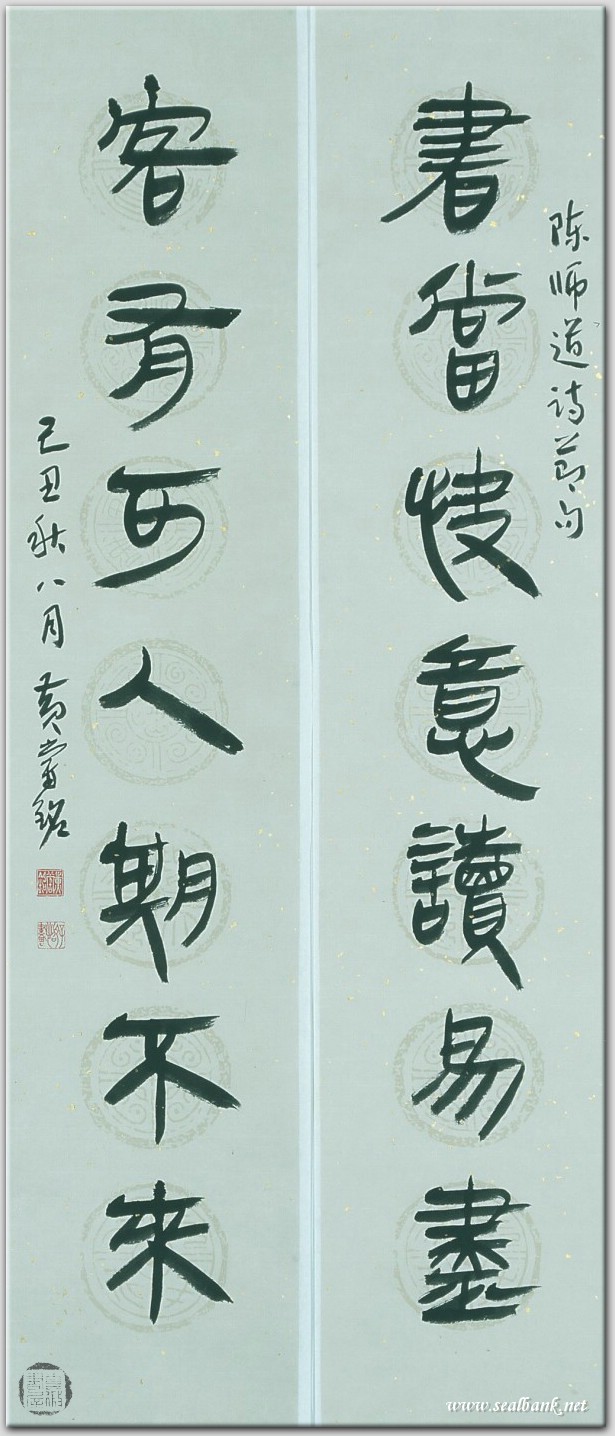 陈师道诗节句
書當快意讀易盡
客有可人期不來
己丑秋八月黄嘗銘
www.sealbank.net